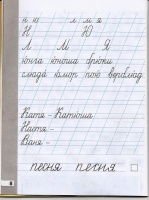 и ю л м я
И Ю
Л М Я
юнга юноша брюки
слюда юмор пою верблюд
Катя - Катюша
Настя -
Ваня -
песня песня